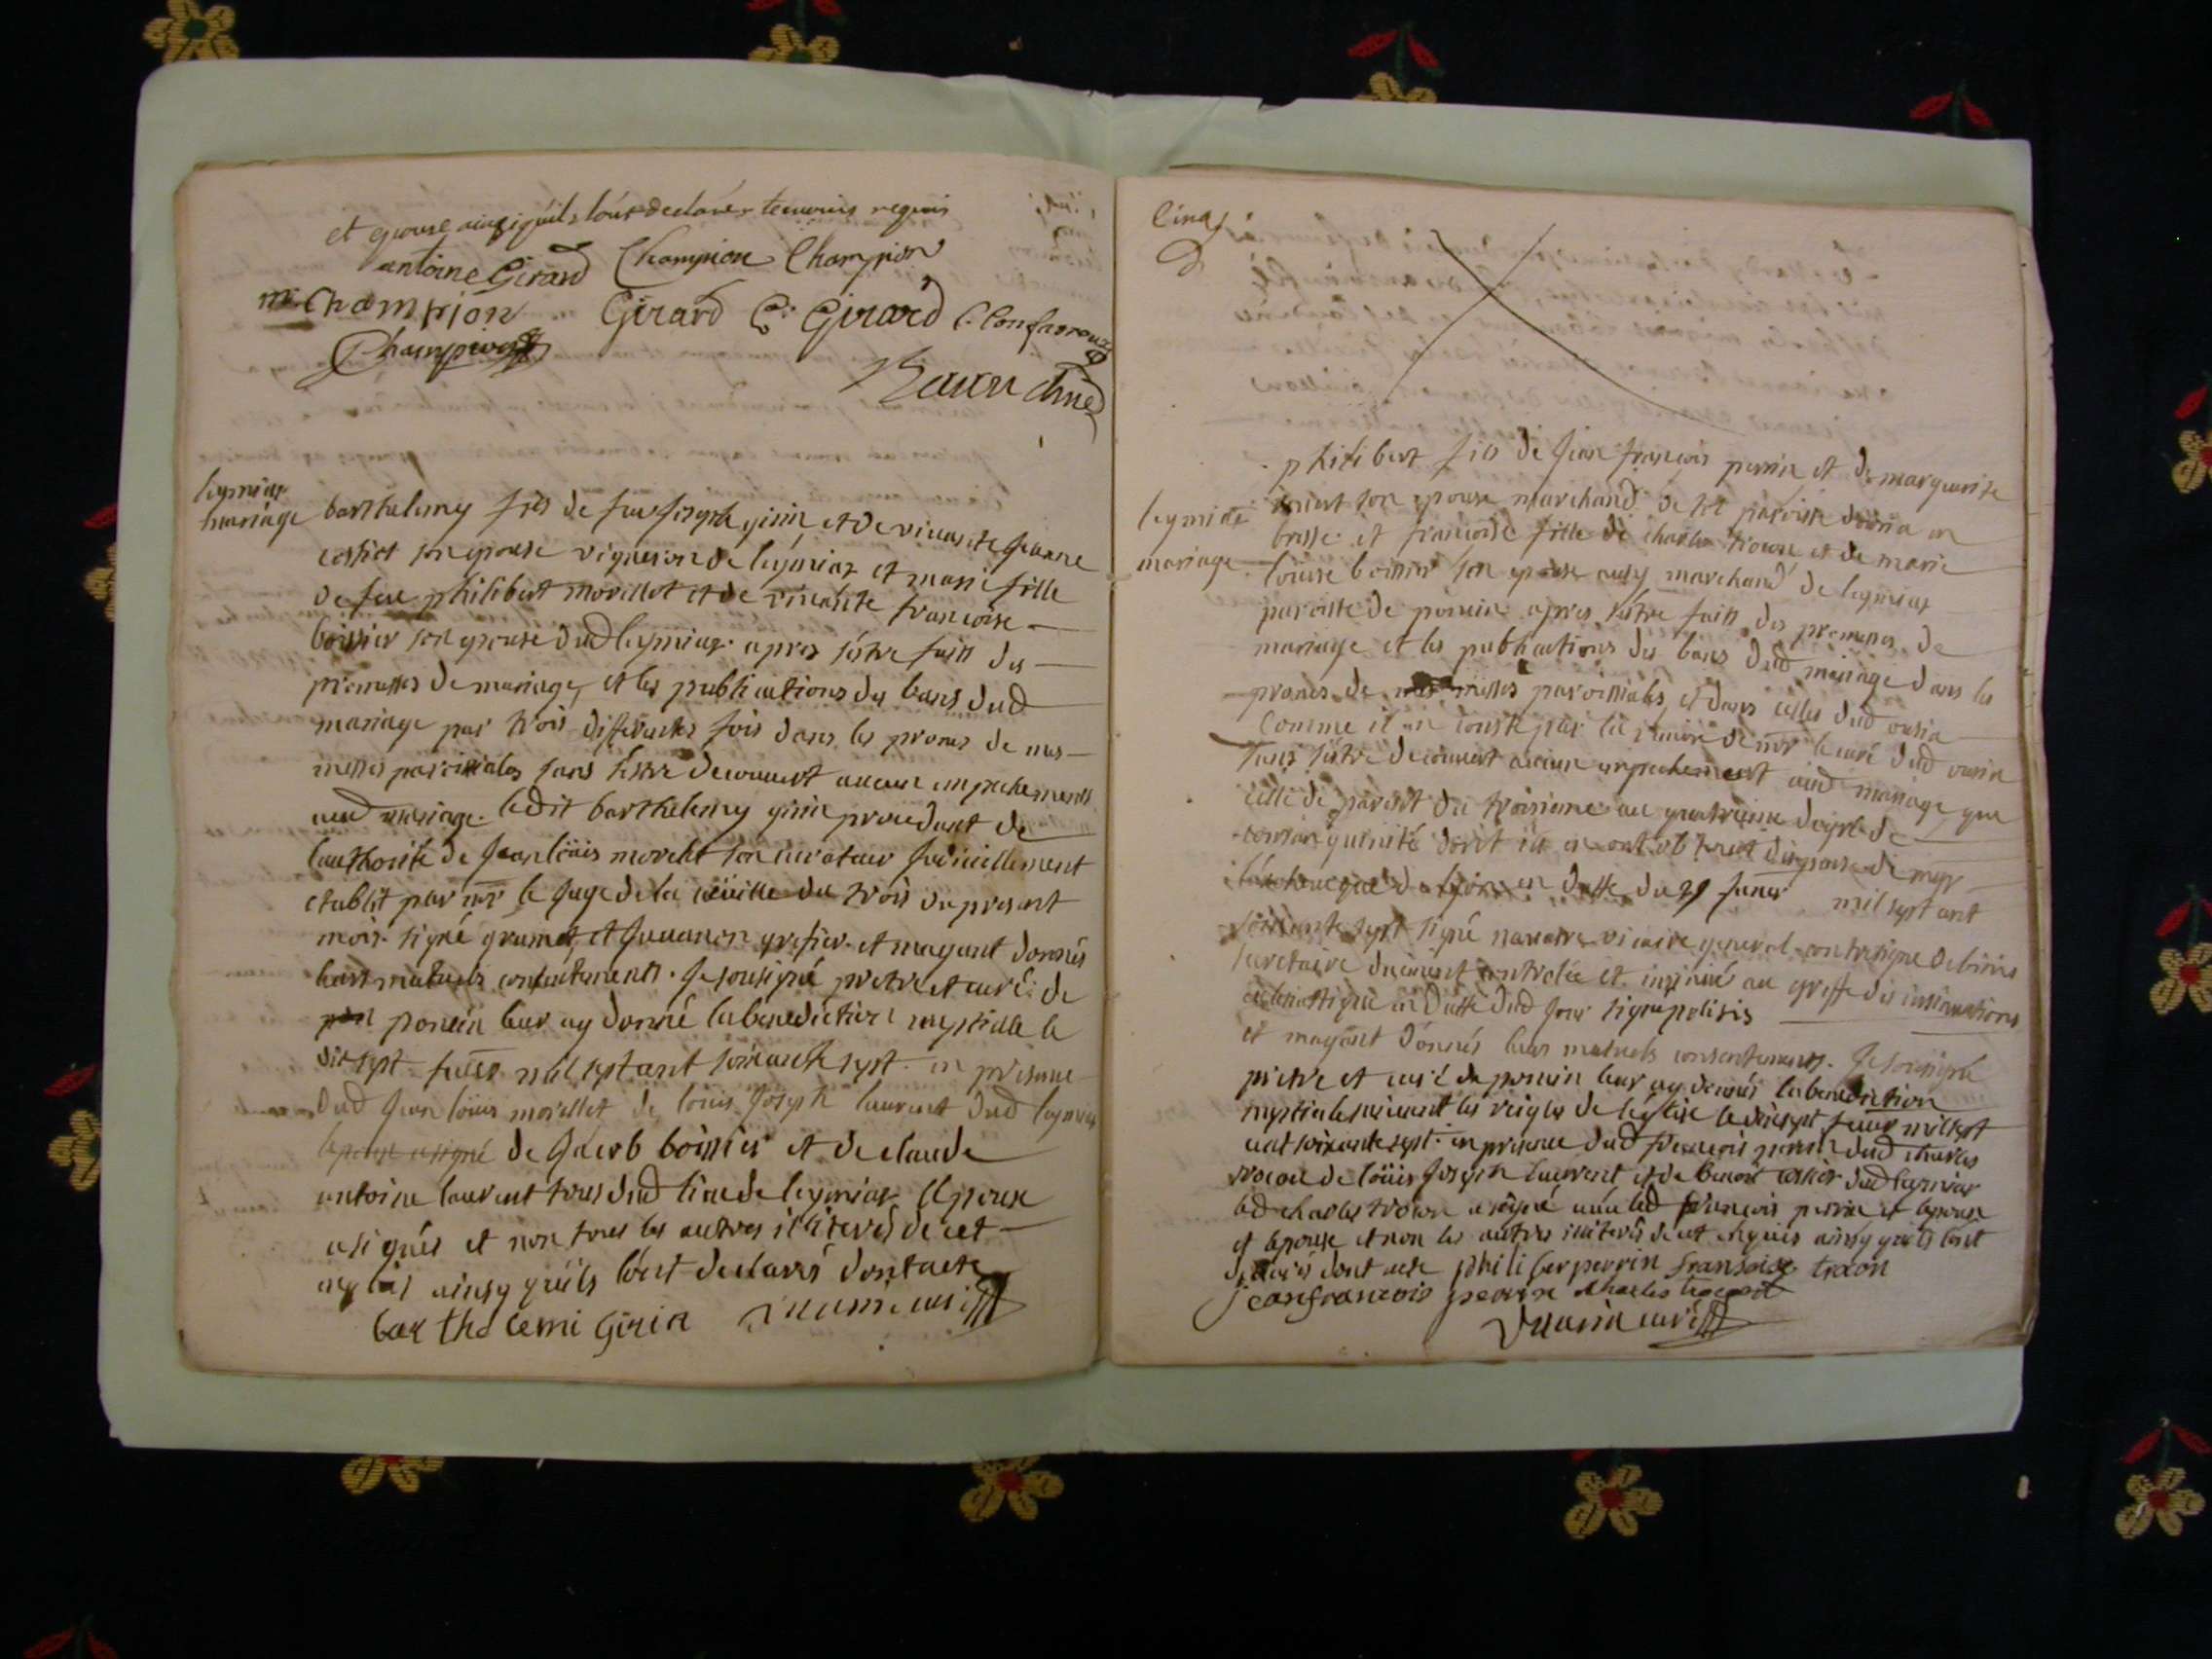 et epouse ainsi qúil, lont declarér temoins requis
antoine Girard Champion Champion
m Champion Girard C. Girard C.
Champion
leymiaz
mariage
barthelemy fils de feu Joseph girin et de vivante Jeanne
son epouse vigneron de leymiaz et marie fille
de feu philibert morellet et de vivante francoise
boissier son epouse dud leymiaz apres sestre faitt des
promesses de mariage, et les publications des bans dud
mariage par trois differentes fois dans les prones de nos
messes paroissiales sans sestre decouvert aucun empechements
aud mariage. ledit barthelemy girin procedant de
lauthorité de Jean loüis morelet son curateur Judiciellement
etablit par mr le Juge de la cüeille du trois du present
mois signé grumet, et Juuanon grefier. et mayant donnés
leurs mutuels consentements. Je sousigné pretre et curé de
poncin leur ay donné la benediction nuptialle le
dix sept feuer mil sept cent soixante sept. en presance
dud Jean loüis morellet de loüis Joseph laurent dud leymiaz
lepoux a signé de Jacob boissier et de claude
antoine laurent tous dud lieu de leymiaz lepoux
a signés et non tous les autres illiterés de cet
ainsy quils lont declarés dont acte
barthelemi Girin curé
Cinq
philibert fils de Jean françois perrin et de marguerite
son epouse marchand de la paroisse en
leymiaz
mariage
bresse et francoise fille de charles trocon et de marie
loüise boissier son epouse aussy marchand de leymiaz
paroisse de poncin apres sêstre faitt des promesses de
mariage et les publications des bans dud mariage dans les
prones de messes paroissiales, et dans celles dud
Comme il en conste par la de mr le curé dud
sans sestre decouvert aucun empechement aud mariage que
celle de parent du troisieme au quatrieme degré de
consanguinité dont ils en ont obtenut dispense de mgr
de lyon en datte du 29 Janer mil sept cent
soixante sept signé navarre vicaire general contresigné
secretaire duement controlée et insinué au greffe des insinuations
eclesiastiques en datte dud Jour signé
et mayant donnés leurs mutuels consentements. Je sousigné
pretre et curé de poncin leur ay donnés la benediction
nuptiale suivant les reigles de léglise le dixsept feuer mil sept
cent soixante sept. en presence dud francois perrin dud charles
trocon de loüis Joseph laurent et de benoit dud leymiaz
led charles trocon a signé led francois perrin et lepoux
et lepouse et non les autres illiterés de ce enquis ainsy quils lont
declarés dont acte philiber perrin fransoise trocon
jean francois perrin charles trocon
curé